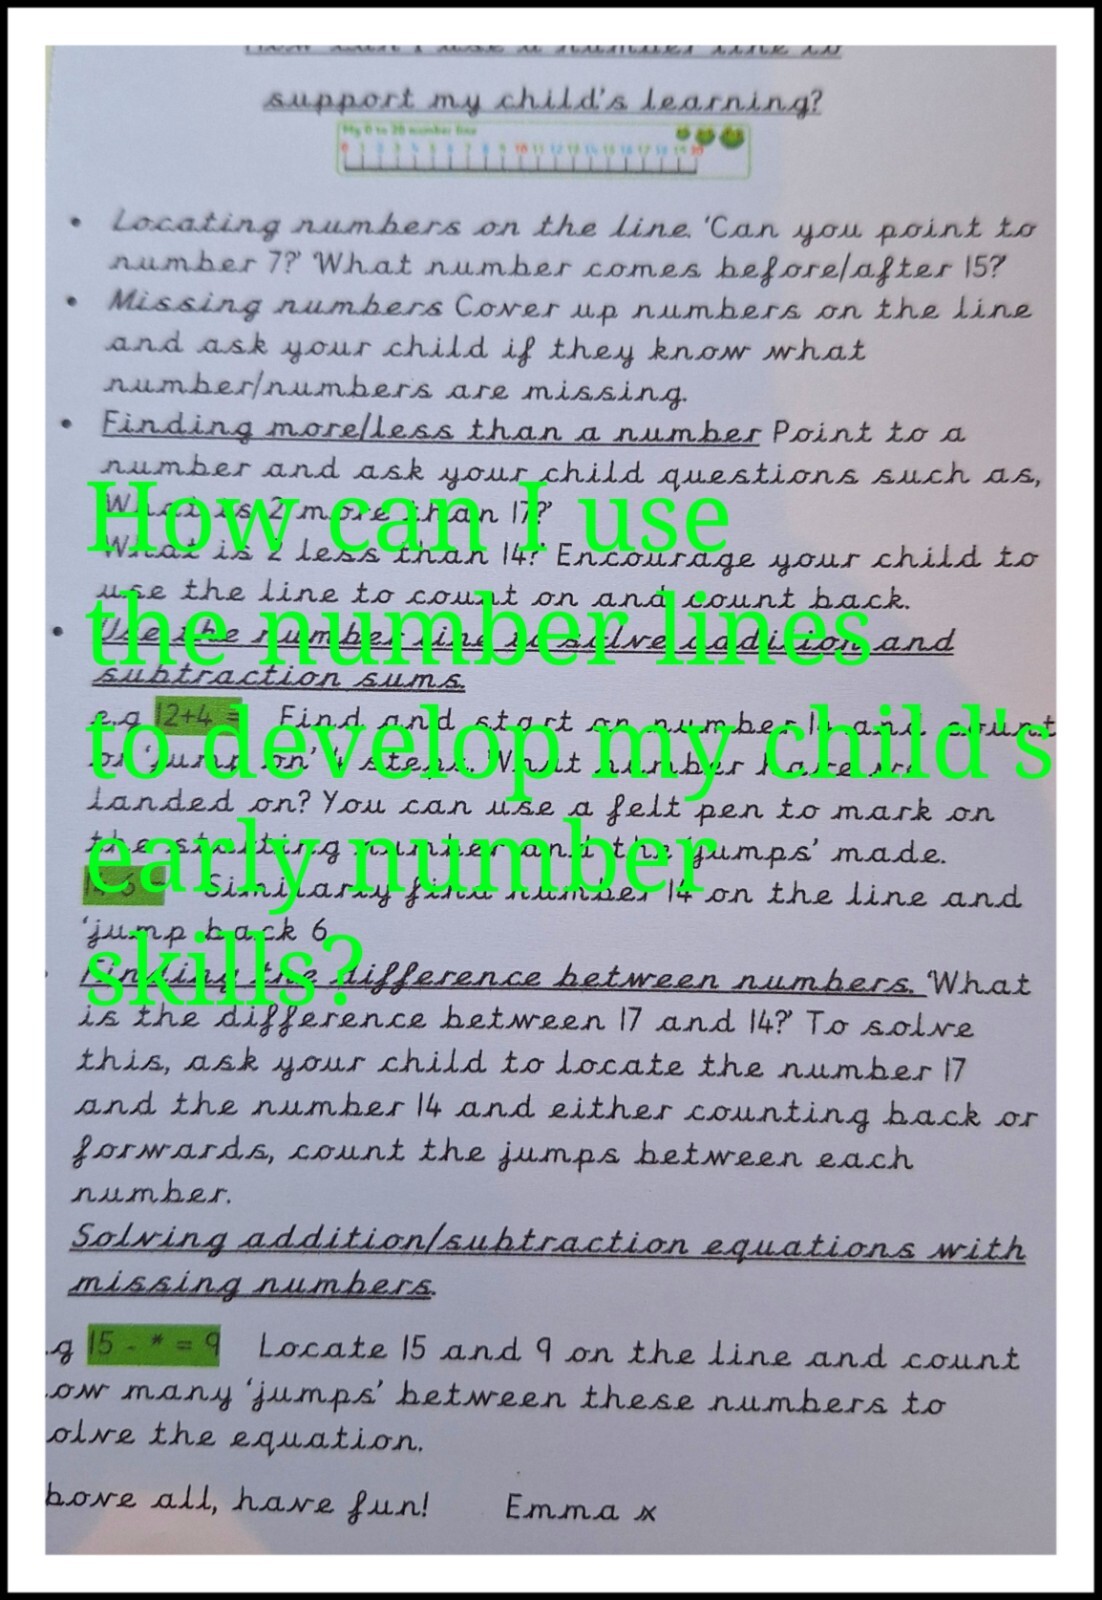 How can I use a number line to
support my child's learning?
My 0 to 20 number line
0 1 2 3 4 5 6 7 8 9 10 11 12 13 14 15 16 17 18 19 20
• Locating numbers on the line. 'Can you point to
number 7?' 'What number comes before/after 15?'
• Missing numbers Cover up numbers on the line
and ask your child if they know what
number/numbers are missing.
• Finding more/less than a number Point to a
number and ask your child questions such as,
'What is 2 more than 17?'
'What is 2 less than 14?' Encourage your child to
use the line to count on and count back.
• Use the number line to solve addition and
subtraction sums.
e.g 12+4 = Find and start on number and count
or 'jump on' 4 steps. What number have we
landed on? You can use a felt pen to mark on
the starting number and the 'jumps' made.
Similarly find number 14 on the line and
'jump back 6
Finding the difference between numbers. 'What
is the difference between 17 and 14?' To solve
this, ask your child to locate the number 17
and the number 14 and either counting back or
forwards, count the jumps between each
number.
Solving addition/subtraction equations with
missing numbers.
.g 15 - * = 9 Locate 15 and 9 on the line and count
ow many 'jumps' between these numbers to
olve the equation.
bove all, have fun! Emma x
How can I use
the number lines
to develop my child's
early number
skills?